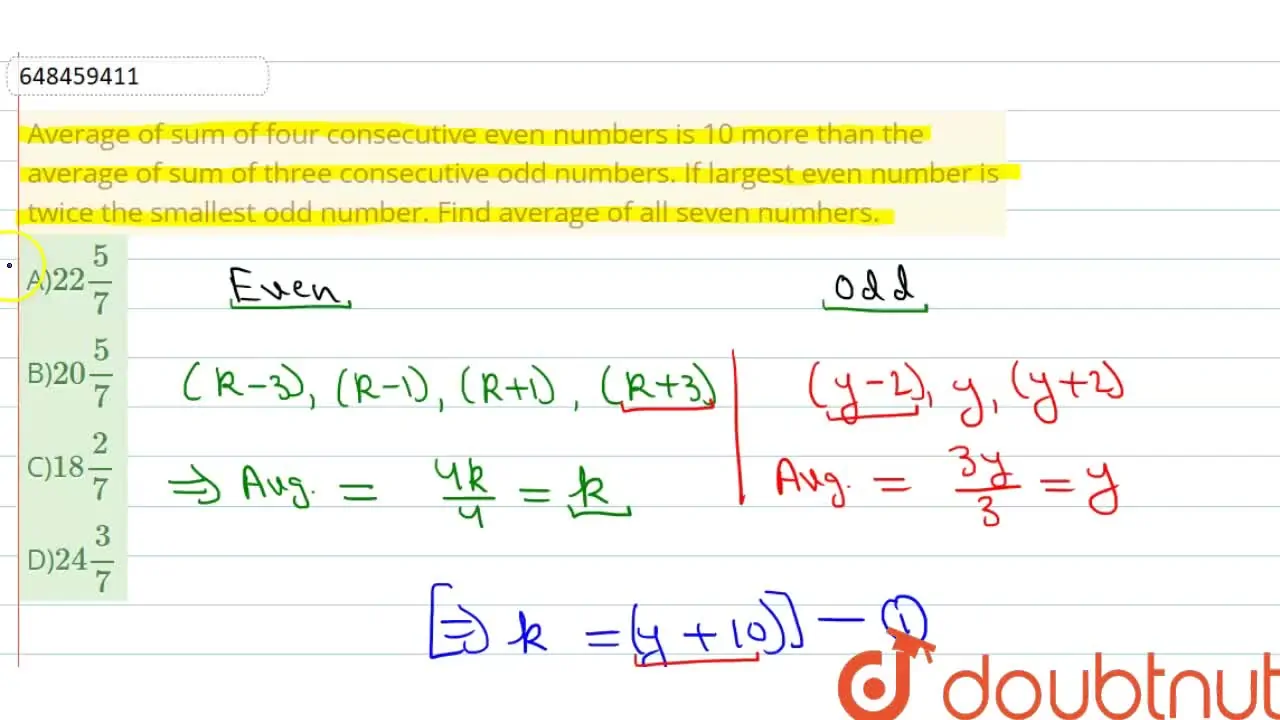 648459411
Average of sum of four consecutive even numbers is 10 more than the
average of sum of three consecutive odd numbers. If largest even number is
twice the smallest odd number. Find average of all seven numhers.
A)22 5/7
B)20 5/7
C)18 2/7
D)24 3/7
Even
Odd
(k-3), (k-1), (k+1), (k+3)
(y-2), y, (y+2)
⇒ Avg. = 4k/4 = k
Avg. = 3y/3 = y
[⇒ k = (y+10)] - ①
doubtnut